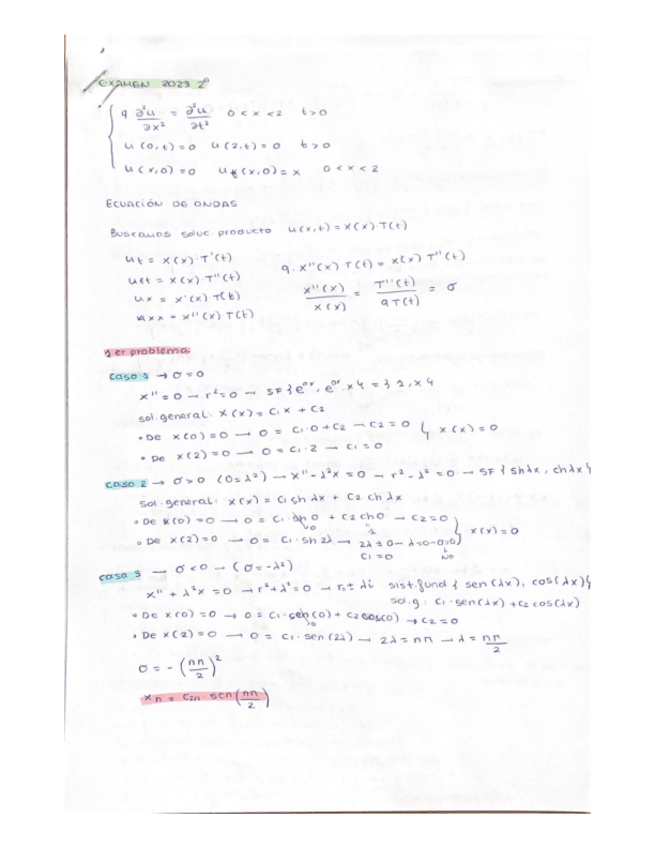 EXAMEN 2023 2º
9 ∂²u/∂x² = ∂²u/∂t² 0 < x < 2 t > 0
u(0,t) = 0 u(2,t) = 0 t > 0
u(x,0) = 0 ut(x,0) = x 0 < x < 2
ECUACIÓN DE ONDAS
Buscamos soluc. producto u(x,t) = X(x) T(t)
ut = X(x)·T'(t)
utt = X(x)·T''(t)
ux = X'(x) T(t)
uxx = X''(x) T(t)
9·X''(x) T(t) = X(x) T''(t)
X''(x)/X(x) = T''(t)/9T(t) = σ
1er problema
Caso 1 → σ = 0
X'' = 0 → r² = 0 → SF { e⁰ˣ, e⁰ˣ·x } = { 1, x }
sol. general: X(x) = C1 x + C2
• De X(0) = 0 → 0 = C1·0 + C2 → C2 = 0 } X(x) = 0
• De X(2) = 0 → 0 = C1·2 → C1 = 0
Caso 2 → σ > 0 (σ = λ²) → X'' - λ²X = 0 → r² - λ² = 0 → SF { shλx, chλx }
sol. general: X(x) = C1 sh λx + C2 ch λx
• De X(0) = 0 → 0 = C1·sh 0 + C2 ch 0 → C2 = 0 } X(x) = 0
• De X(2) = 0 → 0 = C1·sh 2λ → 2λ = 0 → λ = 0 → σ = 0
C1 = 0 NO
caso 3 → σ < 0 → (σ = -λ²)
X'' + λ²X = 0 → r² + λ² = 0 → r = ± λi sist. fund { sen(λx), cos(λx) }
sol.g: C1·sen(λx) + C2 cos(λx)
• De X(0) = 0 → 0 = C1·sen(0) + C2 cos(0) → C2 = 0
• De X(2) = 0 → 0 = C1·sen(2λ) → 2λ = nπ → λ = nπ/2
σ = -(nπ/2)²
Xn = C2n·sen(nπ/2)